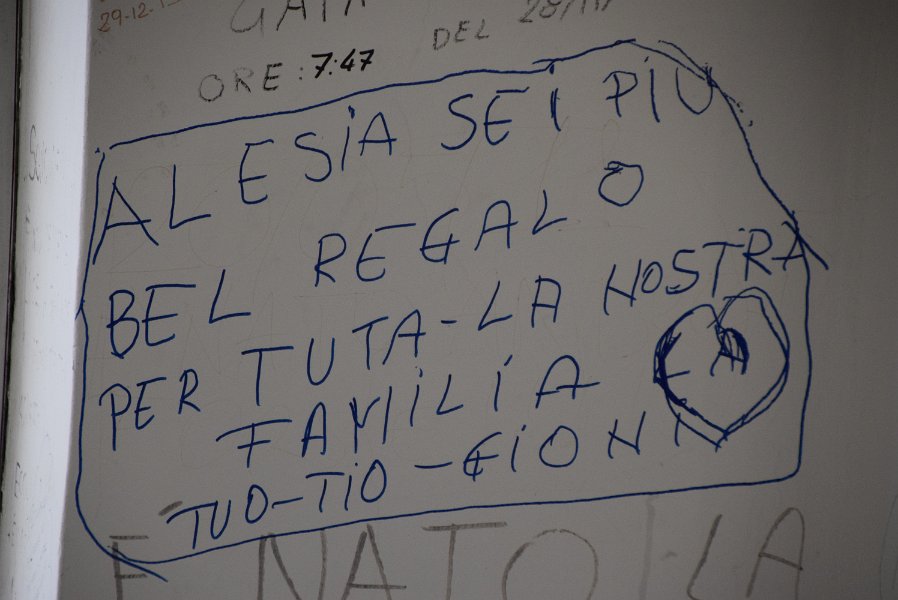 29-12-
GAIA
DEL 28/11/
ORE: 7:47
ALESiA SEI PiÙ
BEL REGALO
PER TUTA-LA NOSTRA
FAMiLiA
TUO-TiO-GiONI
E NATO LA